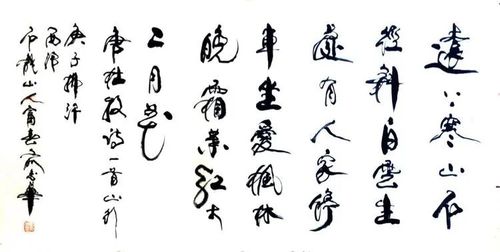 遠上寒山石
徑斜白雲生
處有人家停
車坐愛楓林
晚霜葉紅於
二月花
唐杜牧詩一首山行
庚子揮汗
山人